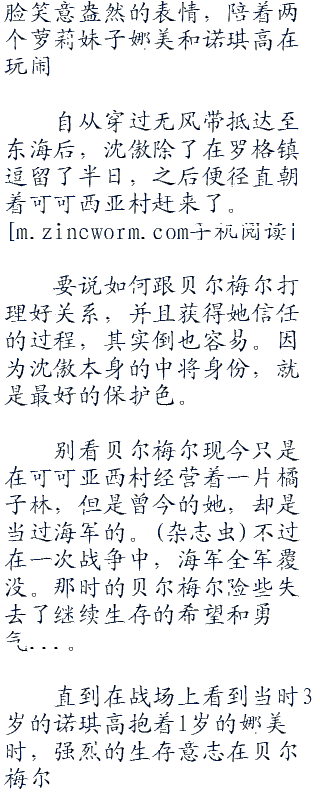 脸笑意盎然的表情，陪着两
个萝莉妹子娜美和诺琪高在
玩闹
自从穿过无风带抵达至
东海后，沈傲除了在罗格镇
逗留了半日，之后便径直朝
着可可西亚村赶来了。
[m.zincworm.com手机阅读]
要说如何跟贝尔梅尔打
理好关系，并且获得她信任
的过程，其实倒也容易。因
为沈傲本身的中将身份，就
是最好的保护色。
别看贝尔梅尔现今只是
在可可亚西村经营着一片橘
子林，但是曾今的她，却是
当过海军的。(杂志虫)不过
在一次战争中，海军全军覆
没。那时的贝尔梅尔险些失
去了继续生存的希望和勇
气...。
直到在战场上看到当时3
岁的诺琪高抱着1岁的娜美
时，强烈的生存意志在贝尔
梅尔